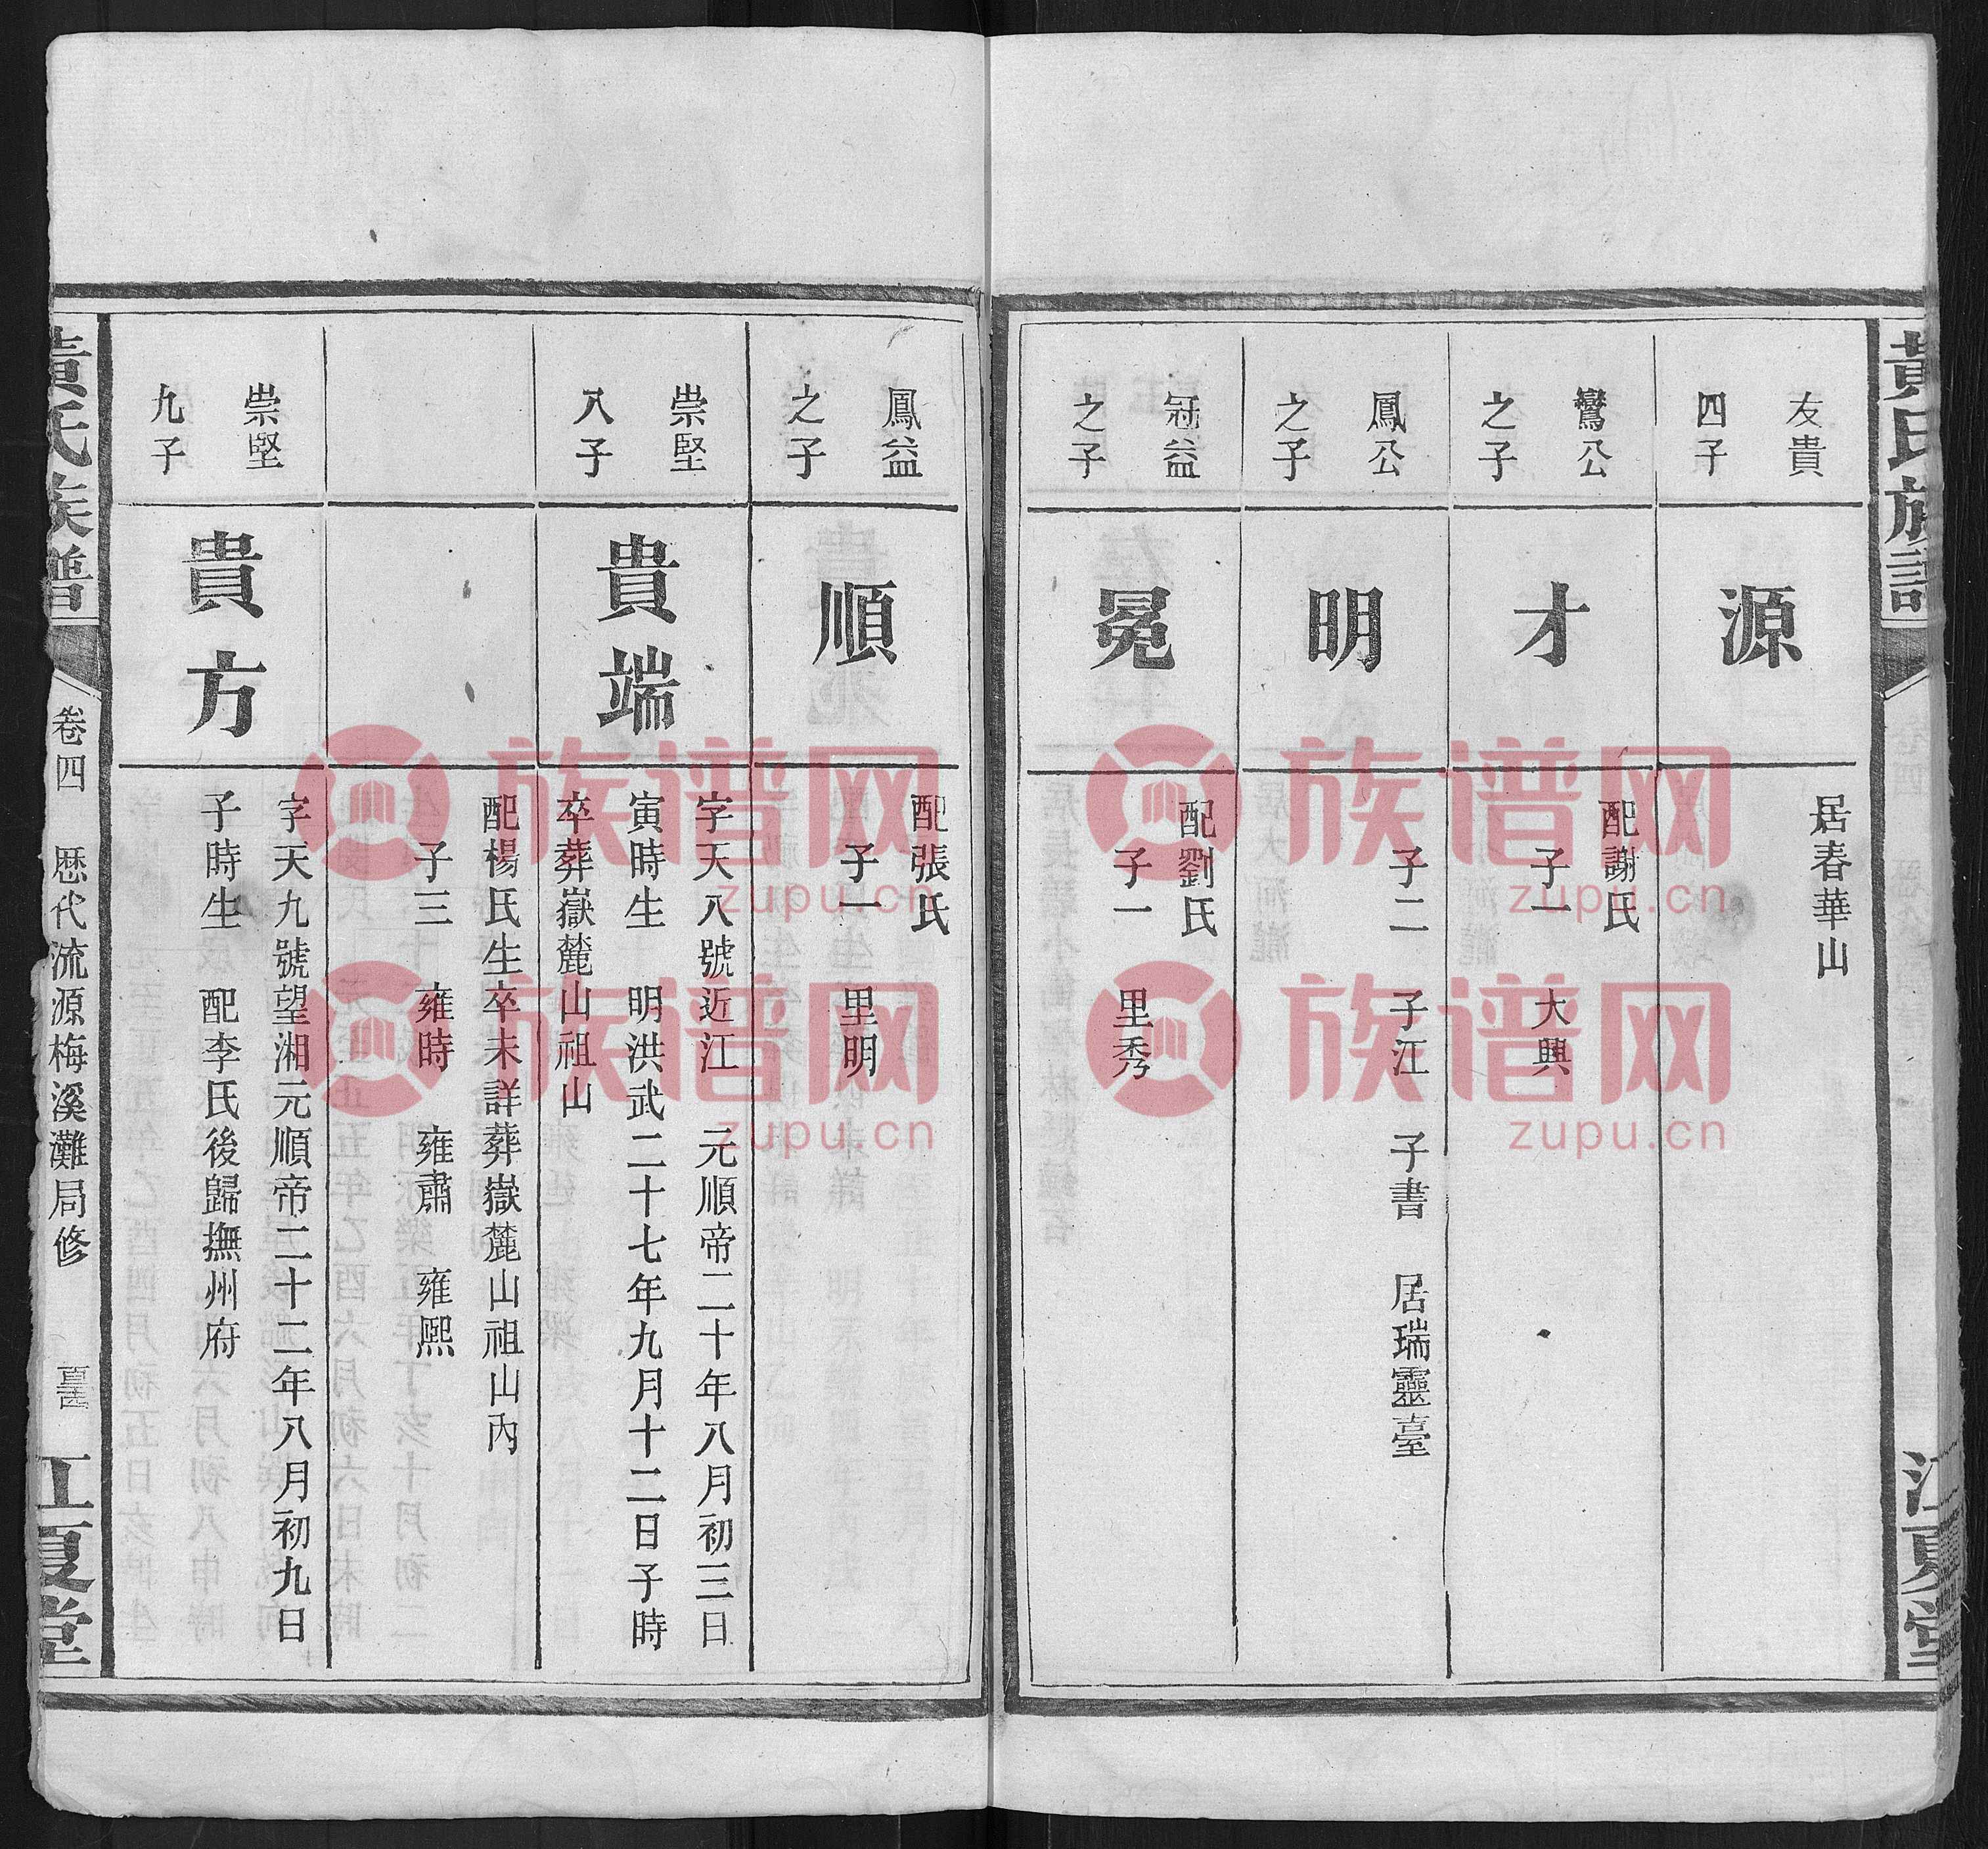 黃氏族譜
江夏堂
友貴
四子
源
居春華山
鸞公
之子
才
配謝氏
子一 大興
鳳公
之子
明
子二 子江 子書 居瑞靈臺
冠益
之子
冕
配劉氏
子一 里秀
鳳益
之子
順
配張氏
子一 里明
崇堅
八子
貴端
字天八號近江 元順帝二十年八月初三日
寅時生 明洪武二十七年九月十二日子時
卒葬嶽麓山祖山
配楊氏生卒未詳葬嶽麓山祖山內
子三 雍時 雍肅 雍熙
崇堅
九子
貴方
字天九號望湘元順帝二十二年八月初九日
子時生 配李氏後歸撫州府
黃氏族譜
卷四 歷代流源梅溪灘局修
江夏堂
族谱网
zupu.cn
族谱网
zupu.cn
族谱网
zupu.cn
族谱网
zupu.cn